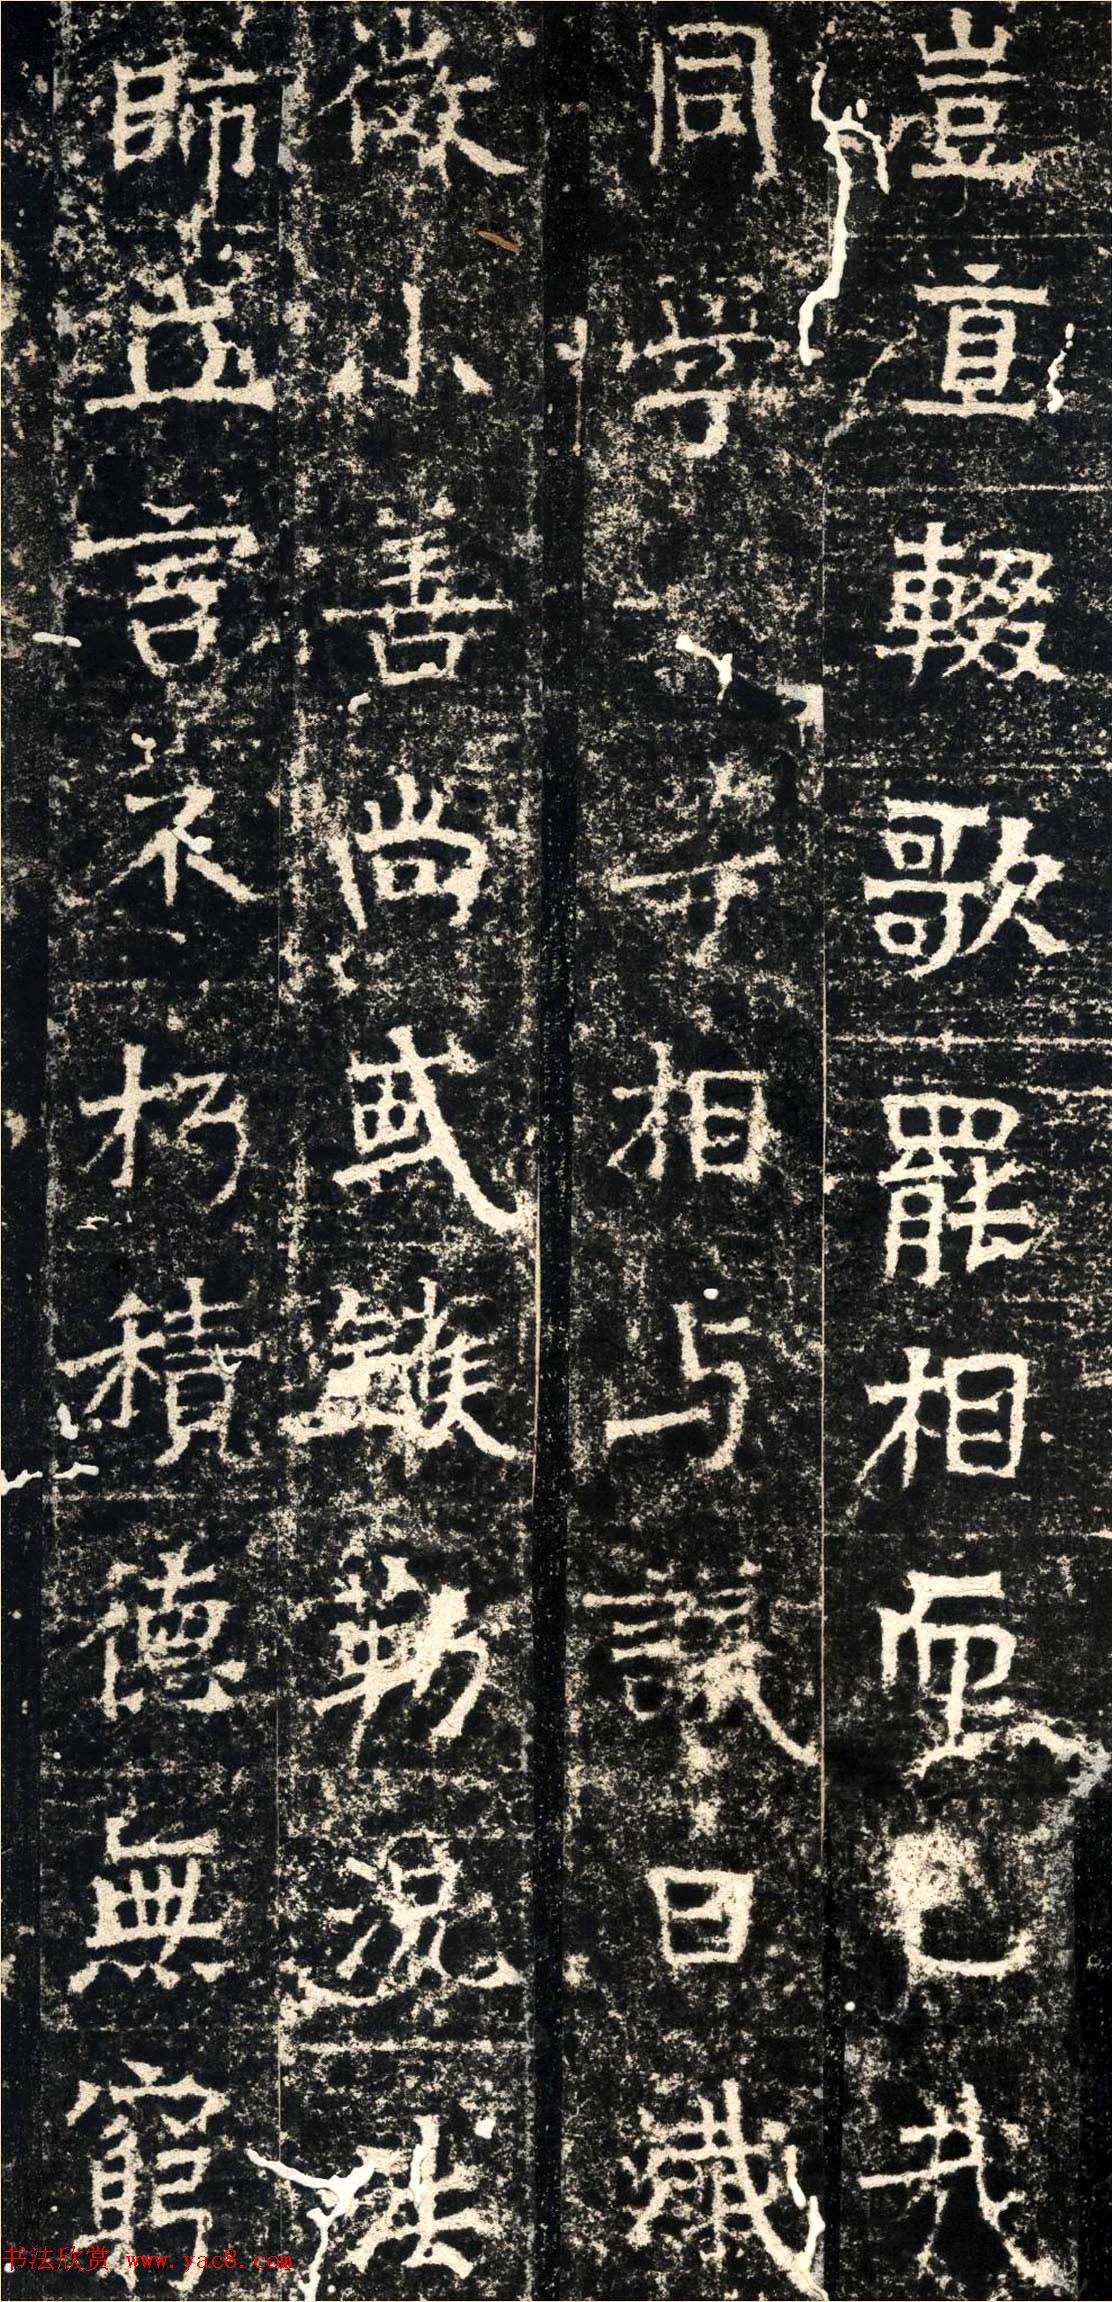 豈直輟歌罷相而已㢤
同學弟子相与議曰纖
微小善尚或鐫勒況法
師立言不朽積德無窮
书法欣赏 www.yac8.com